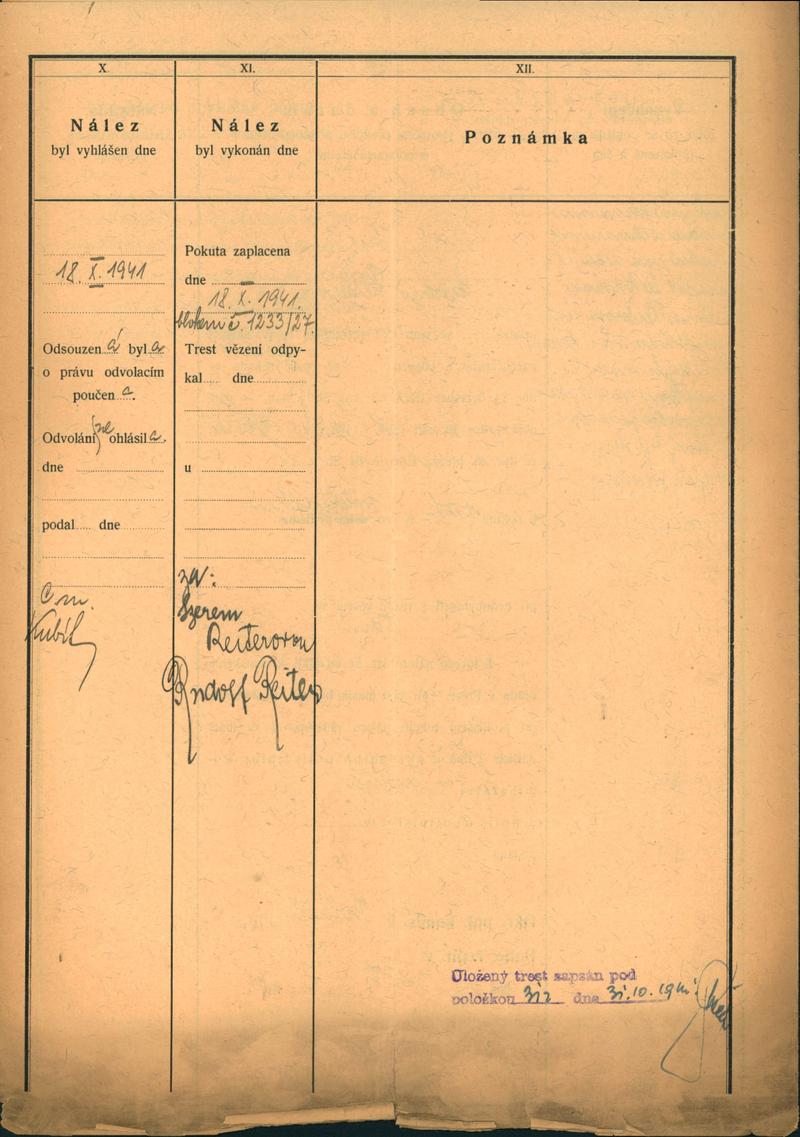 X.
Nález
byl vyhlášen dne
18. X. 1941
Odsouzen á byl a
o právu odvolacím
poučen a.
Odvolání ne ohlásil a.
dne
podal dne
XI.
Nález
byl vykonán dne
Pokuta zaplacena
dne
18. X. 1941.
blokem č. 1233/27.
Trest vězení odpy-
kal dne
u
za:
Reiterovou
Rudolf Reiter
XII.
Poznámka
Uložený trest zapsán pod
položkou dne 31.10.